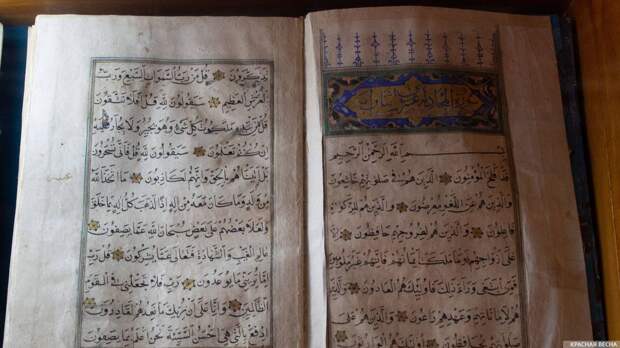 سورة
بسم الله الرحمن الرحيم
قد افلح المؤمنون الذين هم في صلوتهم خاشعون
والذين هم عن اللغو معرضون والذين هم للزكوة
فاعلون والذين هم لفروجهم حافظون الا
على ازواجهم او ما ملكت ايمانهم فانهم غير ملومين
فمن ابتغى وراء ذلك فاولئك هم العادون والذين
هم لاماناتهم وعهدهم راعون والذين هم
اولئك هم
تذكرون قل من رب السموات السبع ورب
العرش العظيم سيقولون لله قل افلا تتقون
قل من بيده ملكوت كل شيء وهو يجير ولا يجار عليه
ان كنتم تعلمون سيقولون لله قل فانى تسحرون
بل اتيناهم بالحق وانهم لكاذبون ما اتخذ الله
من ولد وما كان معه من اله اذا لذهب كل اله بما خلق
ولعلا بعضهم على بعض سبحان الله عما يصفون
عالم الغيب والشهادة فتعالى عما يشركون قل رب
اما تريني ما يوعدون رب فلا تجعلني في القوم
الظالمين وانا على ان نريك ما نعدهم لقادرون
ادفع بالتي هي احسن السيئة نحن اعلم بما يصفون
КРАСНАЯ ВЕСНА